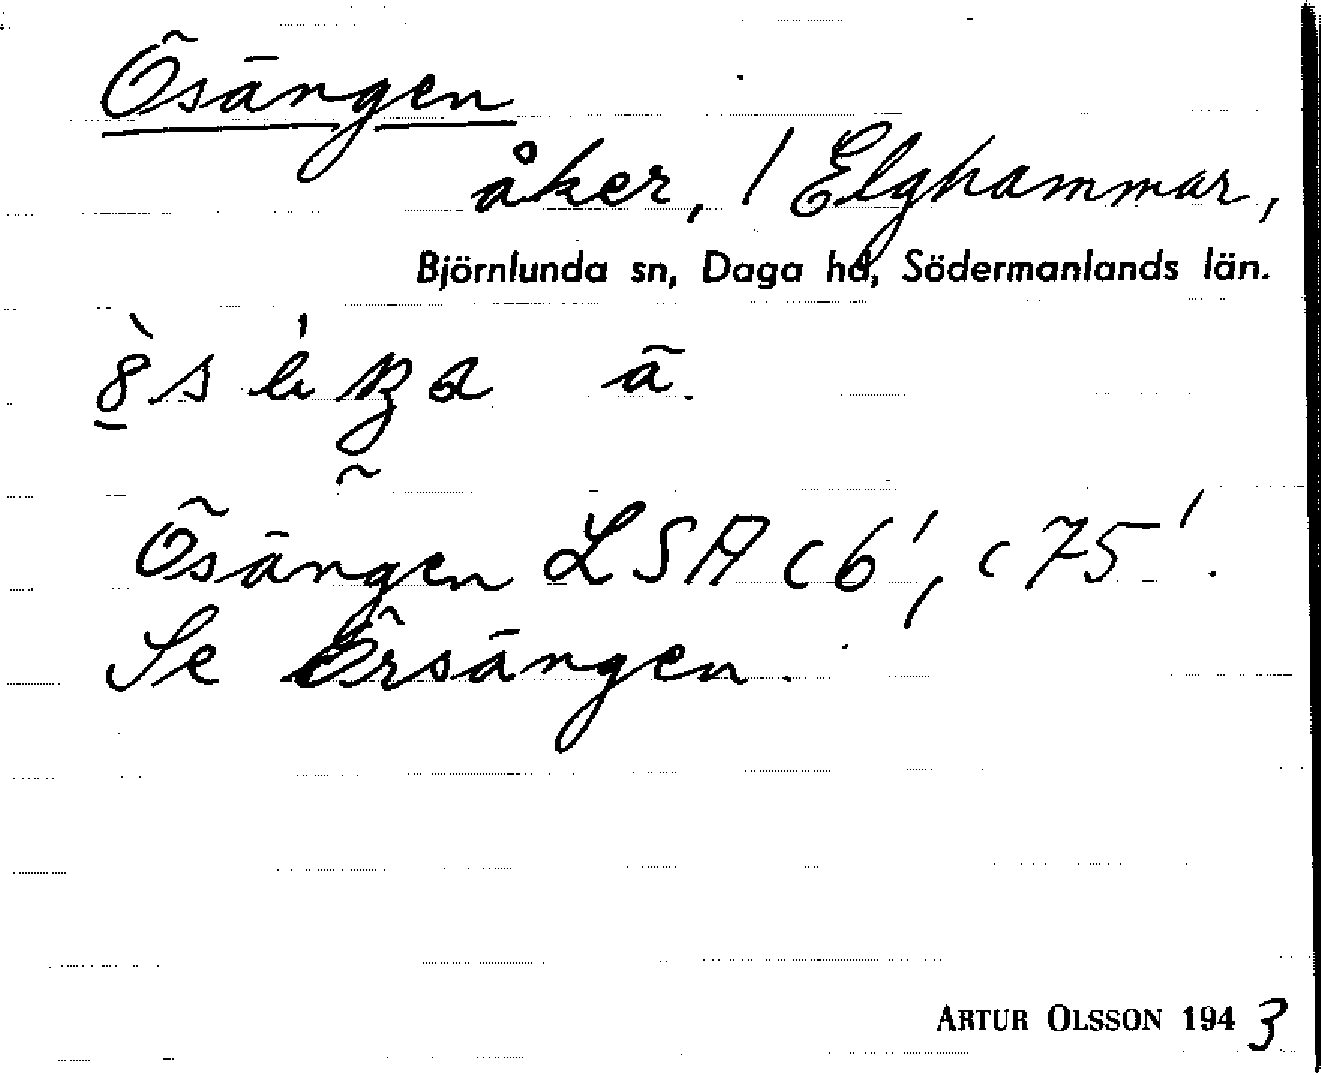 Ösängen
åker, / Elghammar,
Björnlunda sn, Daga hd, Södermanlands län.
ã.
Ösängen LSA c 6', c 75'.
Se Örsängen.
ARTUR OLSSON 1943